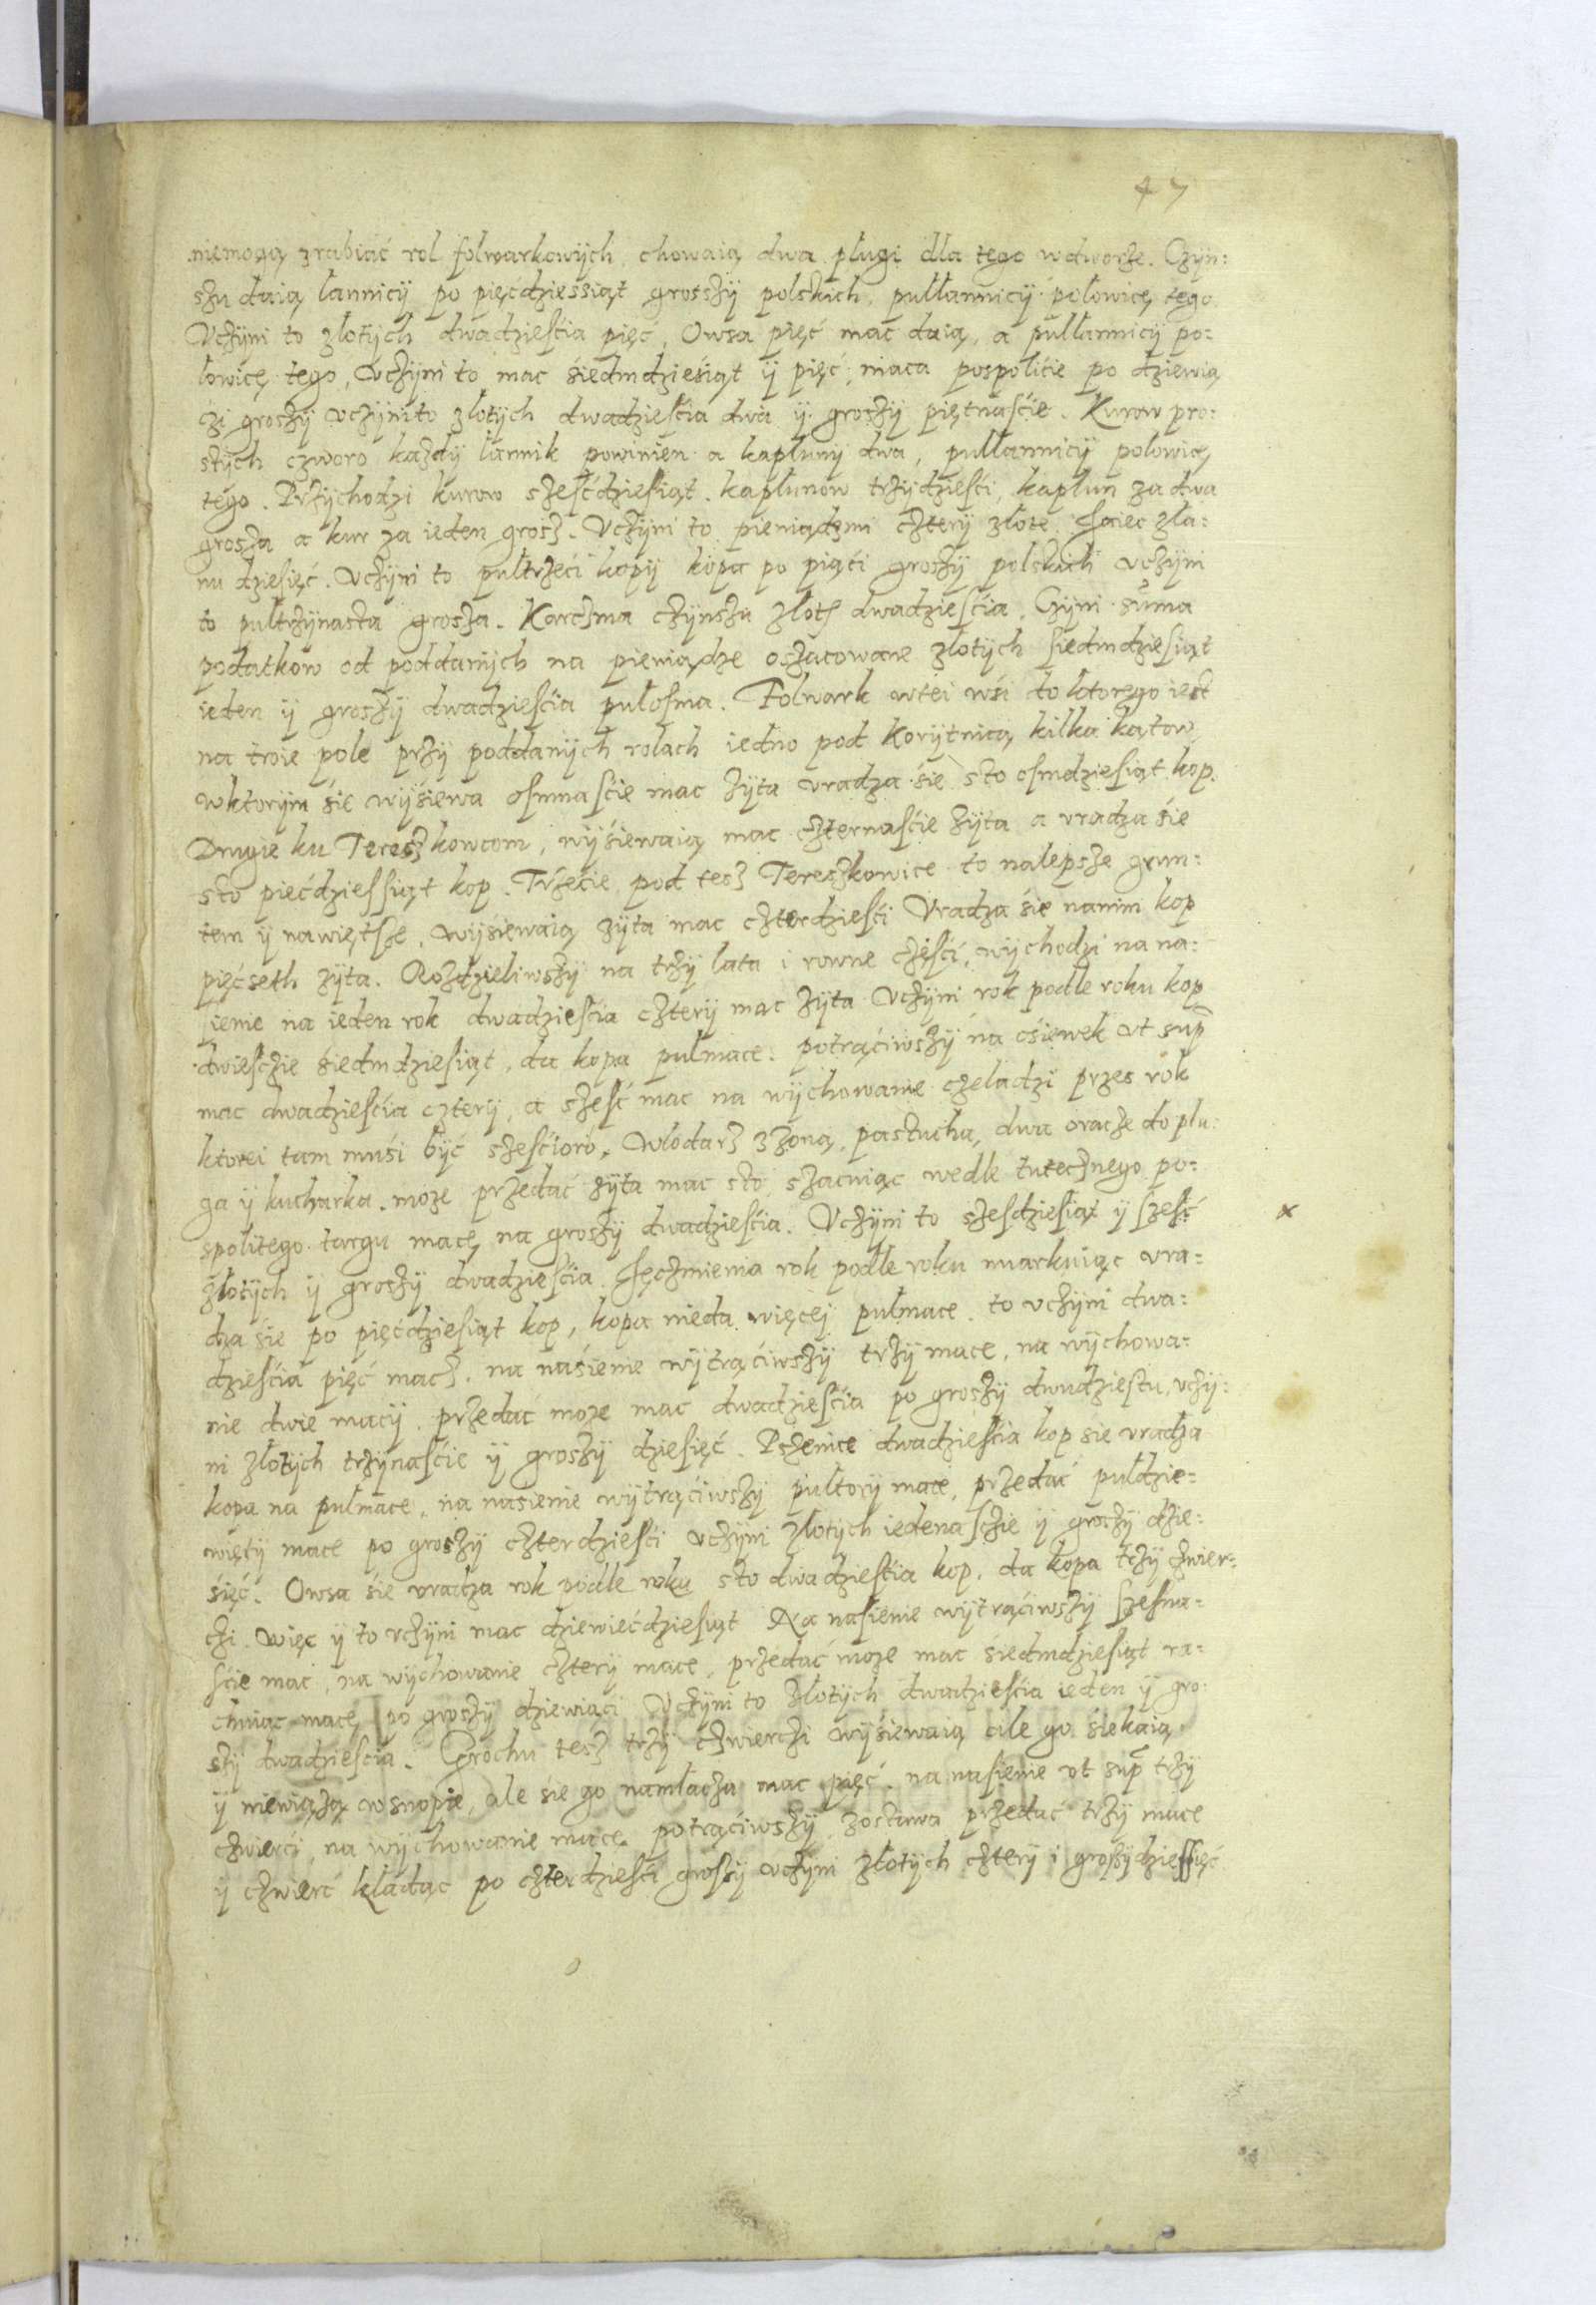 47
niemogą zrabiać rol folwarkowych, chowaią dwa plugi dla tego wdworze. Czyn:
szu daią łannicÿ po pięćdziessiąt grosszÿ polskich, pułłannicÿ połowicę tego.
Vczÿni to złotÿch dwadzieścia pięć, Owsa pięć mac daią, a pułłannicÿ po:
łowicę tego, vczÿni to mac śiedmdzieśiąt ÿ pięć, maca pospolićie po dziewią
czi groszÿ vczÿnito złotÿch dwadzieścia dwa ÿ groszÿ piętnaście. Kurow pro:
stÿch czworo każdÿ łannik powinien a kapłunÿ dwa, pułłannicÿ połowią
tego. Przÿchodzi kurow sześćdziesiąt, kapłunow trzÿdzieści, kapłun za dwa
grosza a kur za ieden grosz. Vczÿni to pieniądzmi czterÿ złote. Jaiec zła:
nu dziesięć. Vczÿni to pułtrzeći kopÿ kopa po piąći groszÿ polskich vczÿni
to pułtrzÿnasta grosza. Karczma czÿnszu złotÿ dwadzieścia. Czÿni suma
podatkow od poddanÿch na pieniądze oszacowane złotÿch siedmdziesiąt
ieden ÿ groszÿ dwadzieścia pułosma. Folwark wtei wśi do ktorego iest
na troie pole przÿ poddanÿch rolach iedno pod Korÿtnicą kilka kątow,
wktorÿm śie wÿśiewa osmnaście mac żÿta vradza śie sto osmdziesiąt kop.
Drugie ku Tereszkowcom, wÿśiewaią mac czternaście żÿta a vradza śie
sto pięćdziessiąt kop. Trzećie pod tesz Tereszkowice to nalepsze grun:
tem ÿ nawiętsze, wÿśiewaią żÿta mac czterdzieści Vradza śie nanim kop
pięćseth żÿta. Rozdzieliwszÿ na trzÿ lata i rowne części, wÿchodzi na na:
sienie na ieden rok dwadzieścia czterÿ mac żÿta Vczÿni rok podle roku kop
dwieszcie śiedmdziesiąt, da kopa pułmace. potrąćiwszÿ na ośiewek vt sup
mac dwadzieścia czterÿ, a sześć mac na wÿchowanie czeladzi przes rok
ktorei tam muśi bÿć sześcioro, włodarz z żoną, pastucha, dwa oracze do płu:
ga ÿ kucharka. może przedać żÿta mac sto szacuiąc wedle tutecznego po:
spolitego targu macę na groszÿ dwadzieścia. Vczÿni to szesdziesiąt ÿ sześć
złotÿch ÿ groszÿ dwadzieścia. Jęczmienia rok podle roku miarkuiąc vra:
dza śie po pięćdziesiąt kop, kopa nieda więcej pułmace. to vczÿni dwa:
dzieścia pięć macz. na naśienie wÿtrąćiwszÿ trzÿ mace, na wÿchowa:
nie dwie macÿ. przedać może mac dwadzieścia po groszÿ dwudziestu, vczÿ:
ni złotÿch trzÿnaście ÿ groszÿ dziesięć. Pszenice dwadzieścia kop sie vradza
kopa na pułmace, na nasienie wÿtrąćiwszÿ pułtorÿ mace, przedać pułdzie:
więtÿ mace po groszÿ czterdzieści vczÿni złotÿch iedenaszcie ÿ groszÿ dzie:
śięć. Owsa śie vradza rok podle roku sto dwadzieścia kop, da kopa trzÿ czwier:
czi. więc ÿ to vczÿni mac dziewięćdziesiąt Na nasienie wÿtrąćiwszÿ szesna:
ście mac, na wÿchowanie czterÿ mace, przedać może mac śiedmdziesiąt ra:
chuiąc macę po groszÿ dziewiąći Vczÿni to złotÿch dwadzieścia ieden ÿ gro:
szÿ dwadzieścia. Grochu tesz trzÿ czwierczi wÿśiewaią cile go śiekaią
ÿ niewiążą wsnopie, ale śie go namłacza mac pięć. na nasienie vt sup trzÿ
czwierci, na wÿchowanie macę potrąćiwszÿ zostawa przedać trzÿ mace
ÿ czwierć kładąc po czterdzieści groszÿ vczÿni złotÿch czterÿ i groszÿ dziessięć